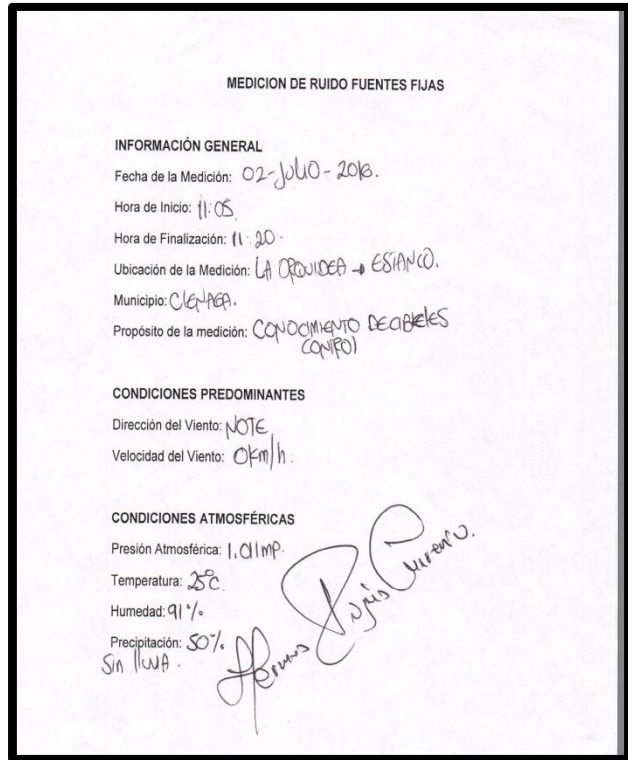 MEDICION DE RUIDO FUENTES FIJAS
INFORMACIÓN GENERAL
Fecha de la Medición: 02-JULIO-2016.
Hora de Inicio: 11:05
Hora de Finalización: 11:20.
Ubicación de la Medición: LA ORQUIDEA → ESTANCO.
Municipio: CIENAGA.
Propósito de la medición: CONOCIMIENTO DECIBELES
CONTROl
CONDICIONES PREDOMINANTES
Dirección del Viento: NOTE
Velocidad del Viento: 0Km/h.
CONDICIONES ATMOSFÉRICAS
Presión Atmosférica: 1,011mP.
Temperatura: 25°C.
Humedad: 91%
Precipitación: 50%
Sin lluvia.